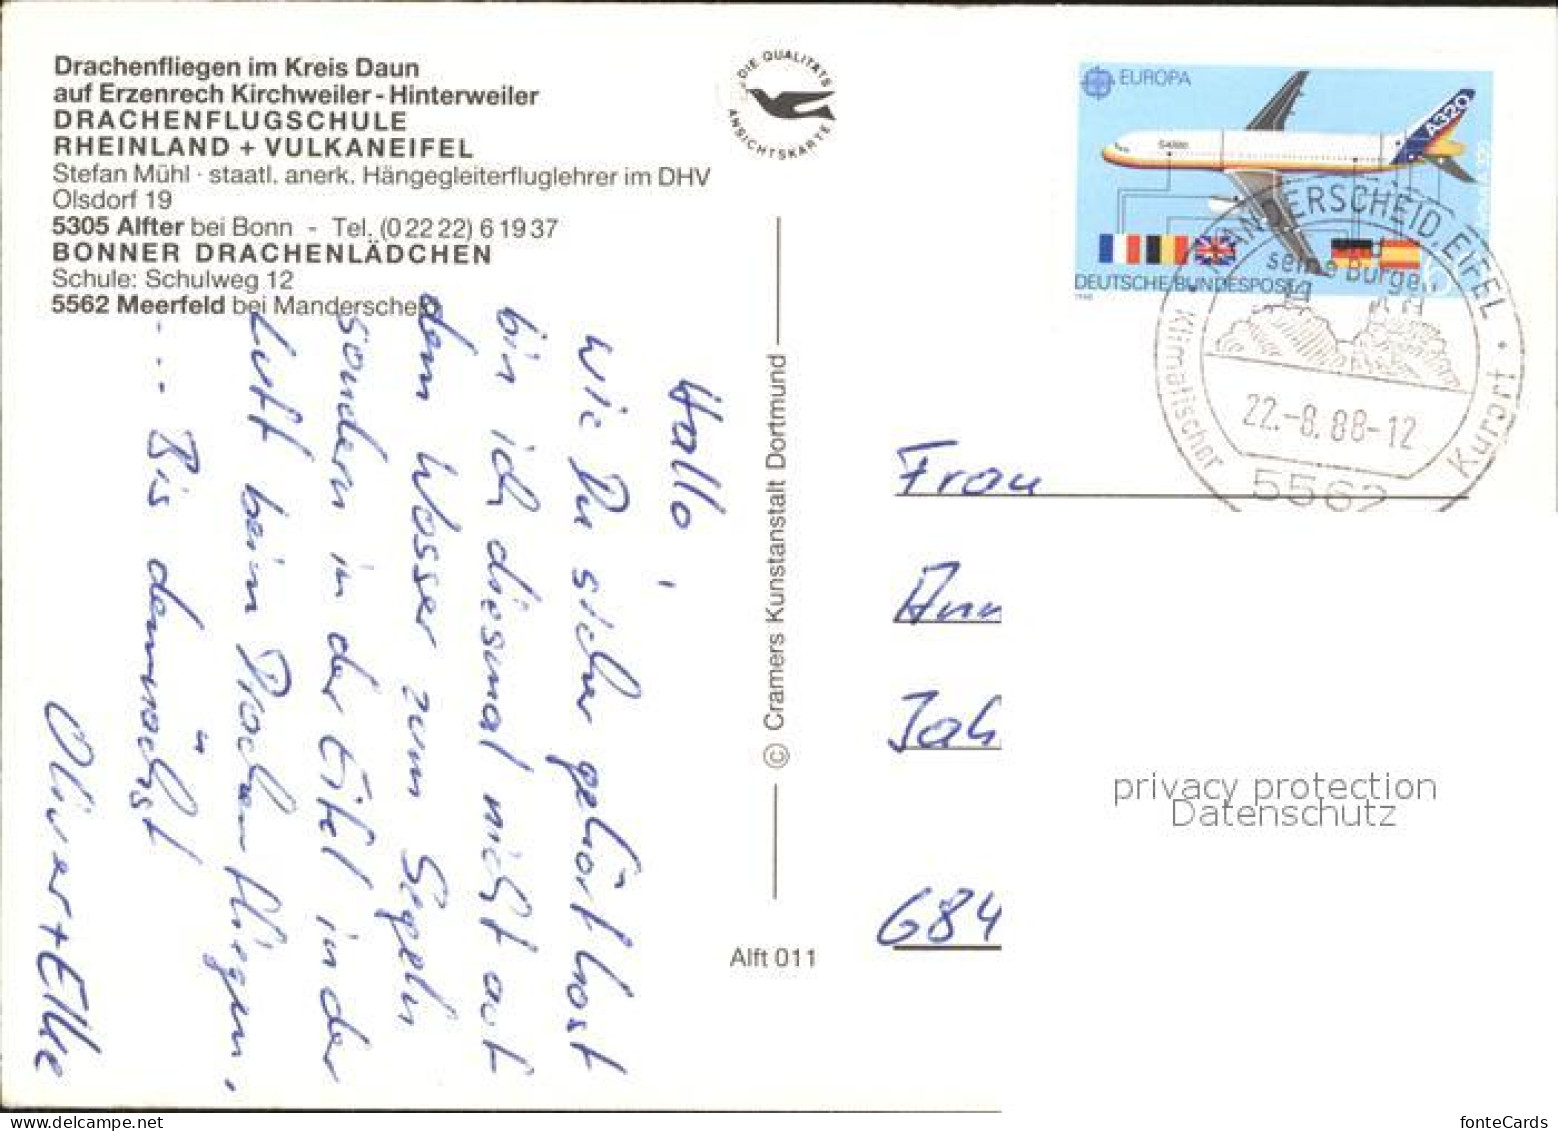 Drachenfliegen im Kreis Daun
auf Erzenrech Kirchweiler - Hinterweiler
DRACHENFLUGSCHULE
RHEINLAND + VULKANEIFEL
Stefan Mühl · staatl. anerk. Hängegleiterfluglehrer im DHV
Olsdorf 19
5305 Alfter bei Bonn - Tel. (0 22 22) 6 19 37
BONNER DRACHENLÄDCHEN
Schule: Schulweg 12
5562 Meerfeld bei Manderscheid
Hallo,
wie Du sicher gehört hast
bin ich diesmal nicht auf
dem Wasser zum Segeln
sondern in der Eifel in der
Luft beim Drachenfliegen.
... Bis demnächst
Oliver + Elke
DIE QUALITÄTS
ANSICHTSKARTE
© Cramers Kunstanstalt Dortmund
Alft 011
EUROPA
A320
DEUTSCHE BUNDESPOST
1988
MANDERSCHEID, EIFEL
und
seine Burgen
Klimatischer Kurort
22.-8.88-12
5562
Frau
Ann
Jah
684
privacy protection
Datenschutz
fonteCards